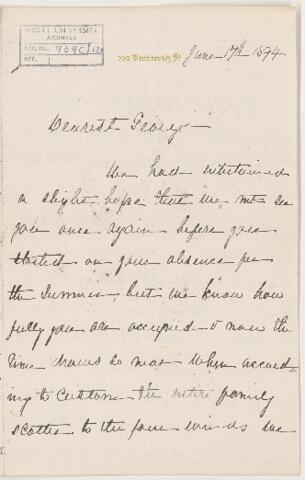 McGILL UNIVERSITY
ARCHIVES
ACC. NO. 909C/
REF.
University St
June 17th 1894
Dearest Percy -
We had entertained
a slight hope that we mt see
you once again before you
started on your absence for
the Summer, but we know how
fully you are occupied & now the
time draws so near when accord-
ing to Custom - the entire family
scatter to the four winds we